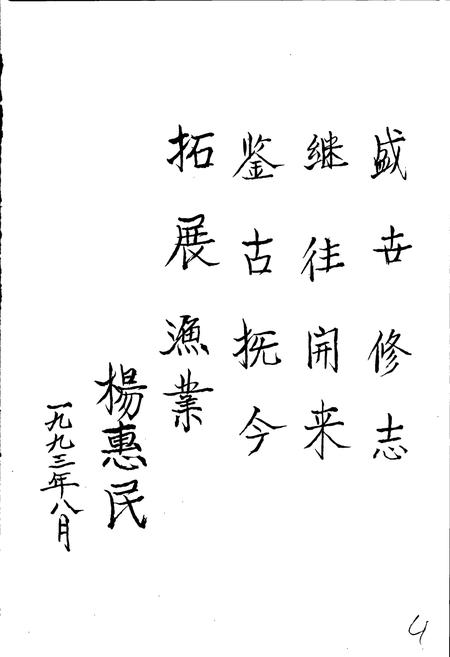 盛世修志
继往開来
鉴古抚今
拓展漁業
楊惠民
一九九三年八月
4